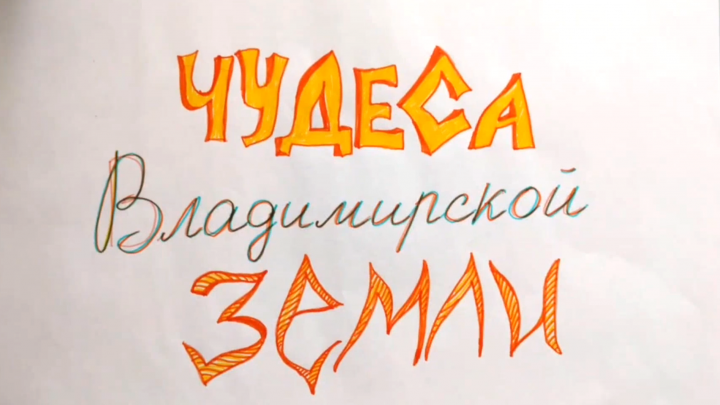 ЧУДЕСА
Владимирской
ЗЕМЛИ